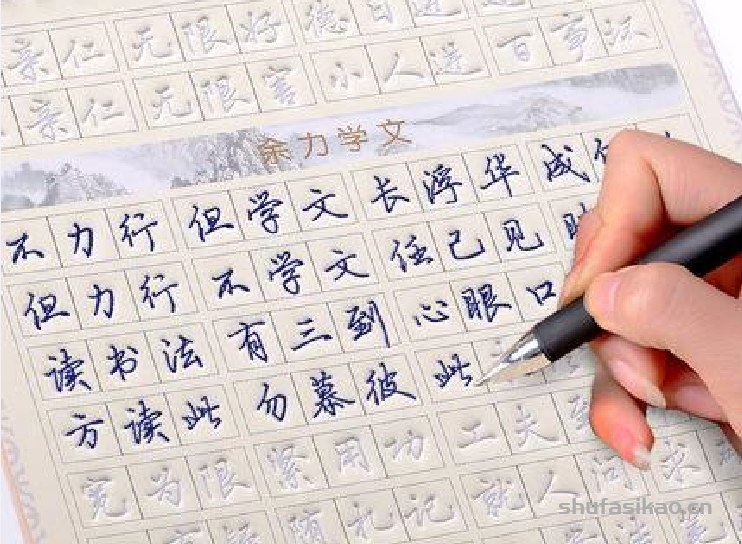 亲仁 无限好 德日进
亲仁 无限害 小人进 百事坏
余力学文
不力行 但学文 长浮华 成
但力行 不学文 任己见
读书法 有三到 心眼口
方读此 勿慕彼 此
宽为限 紧用功 工夫到
随札记 就人问 求
shufasikao.cn